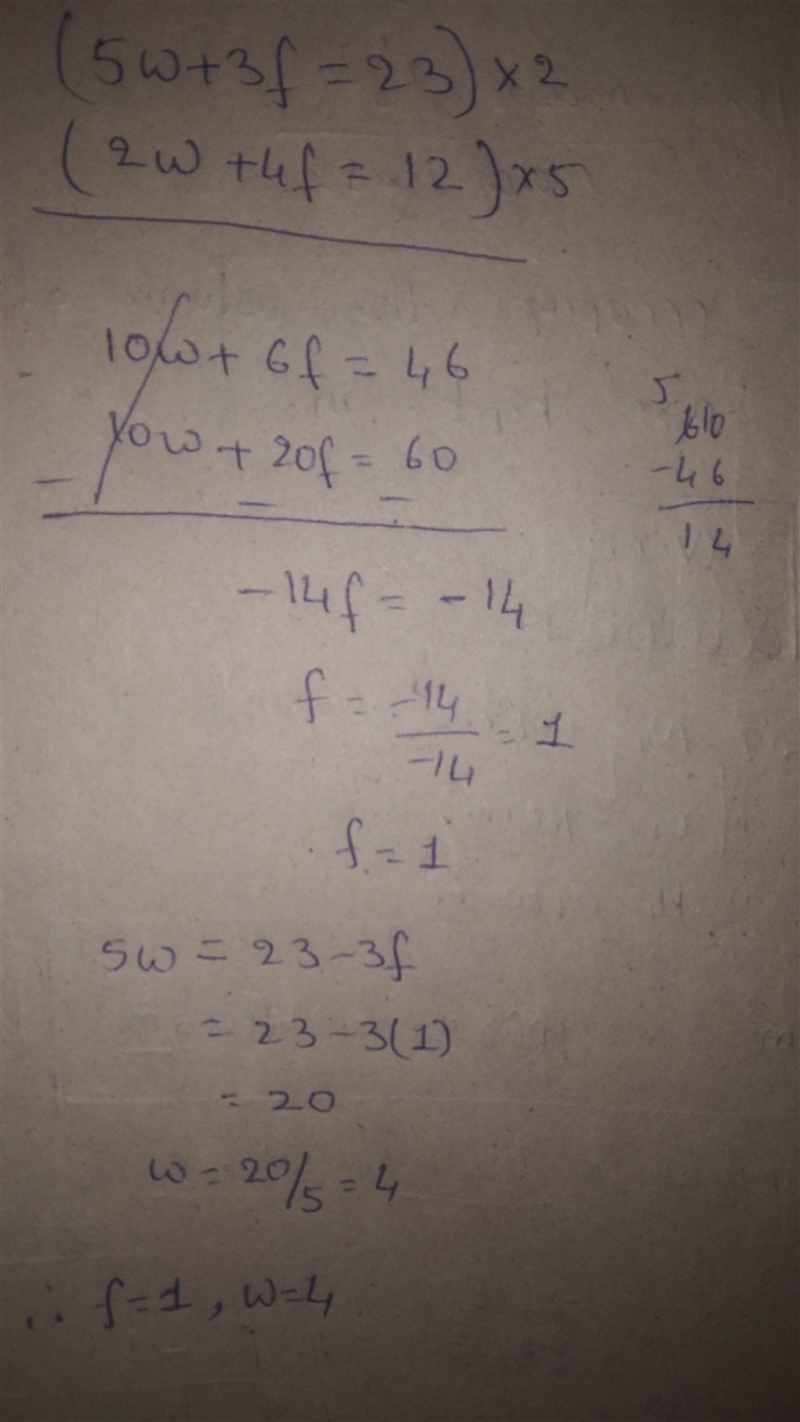 (5w+3f=23)×2
(2w+4f=12)×5
10w+ 6f = 46
10w + 20f = 60
- - -
5
610
-46
14
-14f = -14
f = -14/-14 = 1
f=1
5w = 23-3f
= 23-3(1)
= 20
w = 20/5 = 4
∴ f=1, w=4